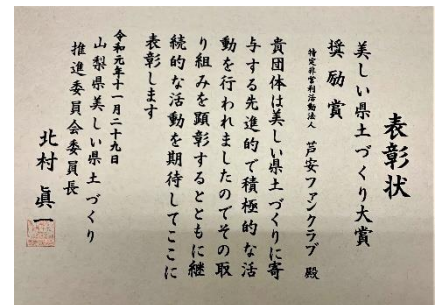 表彰状
美しい県土づくり大賞
奨励賞
特定非営利活動法人 芦安ファンクラブ 殿
貴団体は美しい県土づくりに寄
与する先進的で積極的な活
動を行われましたのでその取
り組みを顕彰するとともに継
続的な活動を期待してここに
表彰します
令和元年十一月二十九日
山梨県美しい県土づくり
推進委員会委員長
北村 眞一